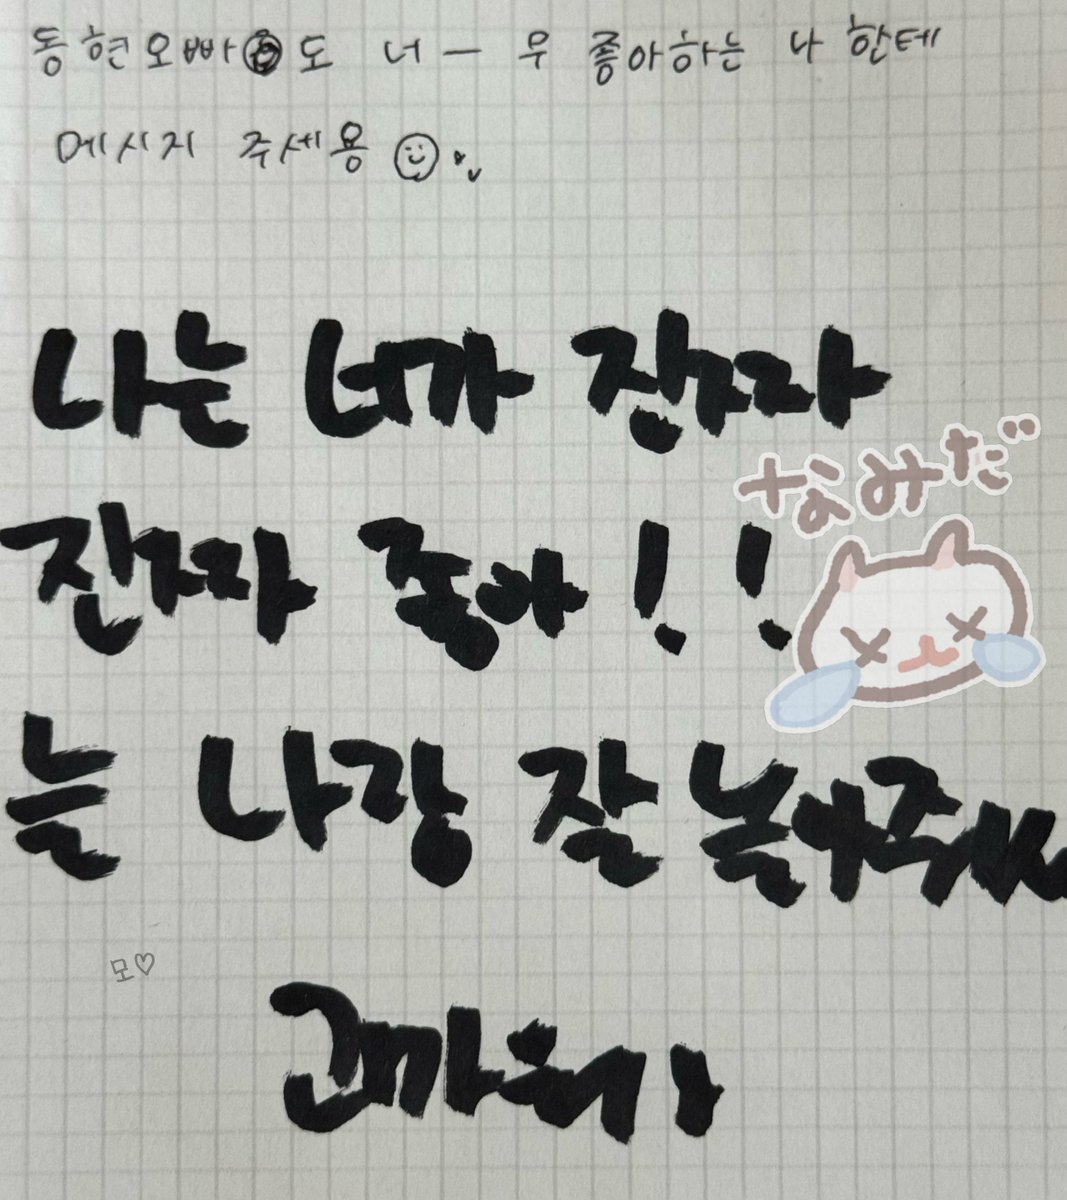 동현오빠도 너ー무 좋아하는 나한테
메시지 주세용
나는 너가 진짜
진짜 좋아!!
なみだ
늘 나랑 잘 놀아줘서
모♡
고마워